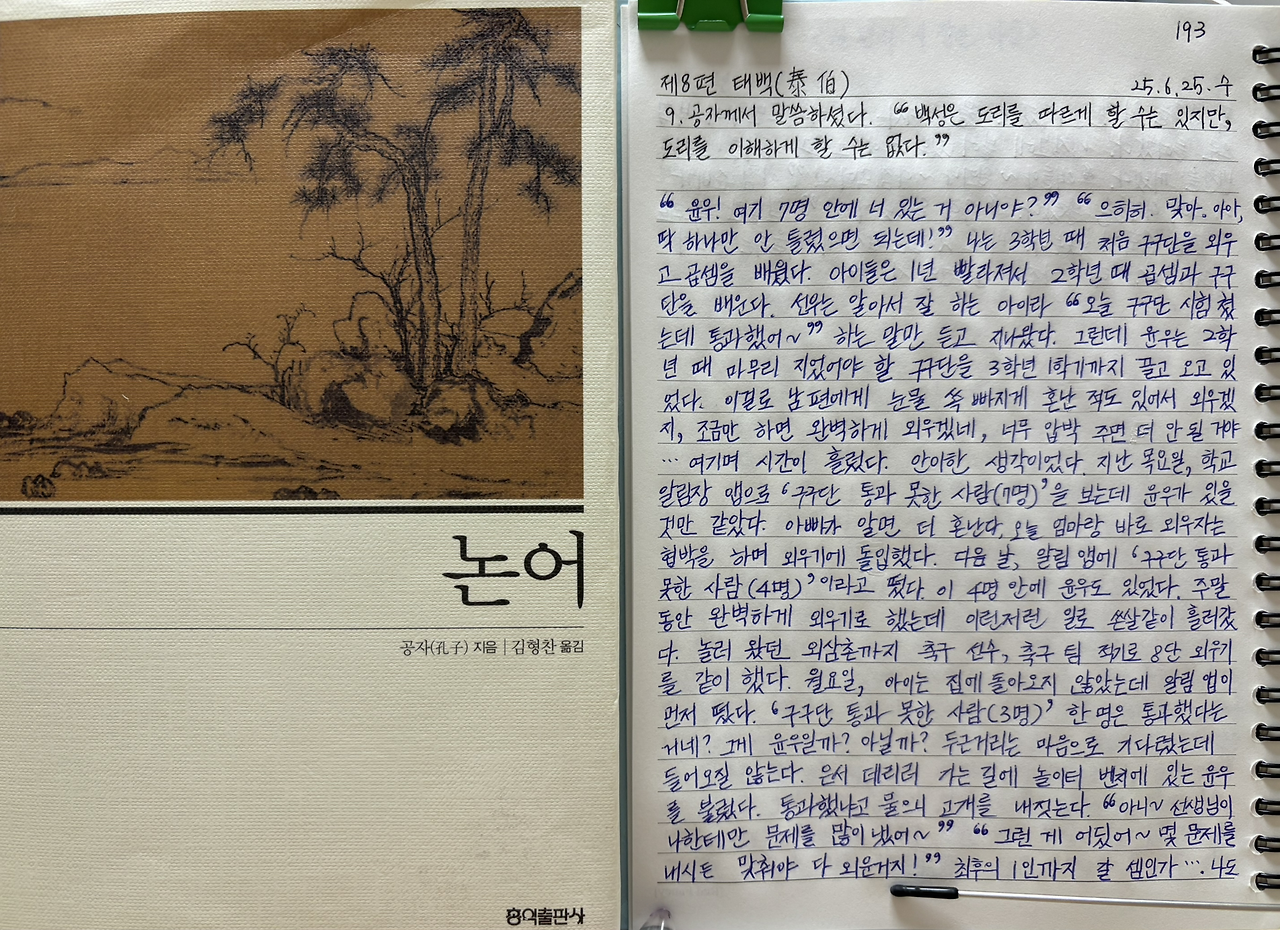 논어
공자(孔子) 지음 | 김형찬 옮김
홍익출판사
193
제8편 태백(泰伯) 25.6.25.수
9. 공자께서 말씀하셨다. “백성은 도리를 따르게 할 수는 있지만,
도리를 이해하게 할 수는 없다.”
“윤우! 여기 7명 안에 너 있는 거 아니야?” “으히히. 맞아. 아아,
딱 하나만 안 틀렸으면 되는데!” 나는 3학년 때 처음 구구단을 외우
고 곱셈을 배웠다. 아이들은 1년 빨라져서 2학년 때 곱셈과 구구
단을 배운다. 선우는 알아서 잘 하는 아이라 “오늘 구구단 시험 쳤
는데 통과했어~” 하는 말만 듣고 지나왔다. 그런데 윤우는 2학
년 때 마무리 지었어야 할 구구단을 3학년 1학기까지 끌고 오고 있
었다. 이걸로 남편에게 눈물 쏙 빠지게 혼난 적도 있어서 외우겠
지, 조금만 하면 완벽하게 외우겠네, 너무 압박 주면 더 안 될 거야
… 여기며 시간이 흘렀다. 안이한 생각이었다. 지난 목요일, 학교
알림장 앱으로 ‘구구단 통과 못한 사람(7명)’을 보는데 윤우가 있을
것만 같았다. 아빠가 알면 더 혼난다, 오늘 엄마랑 바로 외우자는
협박을 하며 외우기에 돌입했다. 다음 날, 알림 앱에 ‘구구단 통과
못한 사람(4명)’이라고 떴다. 이 4명 안에 윤우도 있었다. 주말
동안 완벽하게 외우기로 했는데 이런저런 일로 쏜살같이 흘러갔
다. 놀러 왔던 외삼촌까지 축구 선수, 축구 팀 적기로 8단 외우기
를 같이 했다. 월요일, 아이는 집에 돌아오지 않았는데 알림 앱이
먼저 떴다. ‘구구단 통과 못한 사람(3명)’ 한 명은 통과했다는
거네? 그게 윤우일까? 아닐까? 두근거리는 마음으로 기다렸는데
들어오질 않는다. 은서 데리러 가는 길에 놀이터 벤치에 있는 윤우
를 불렀다. 통과했냐고 물으니 고개를 내젓는다. “아니~ 선생님이
나한테만 문제를 많이 냈어~” “그런 게 어딨어~ 몇 문제를
내시든 맞춰야 다 외운거지!” 최후의 1인까지 갈 셈인가…. 나도